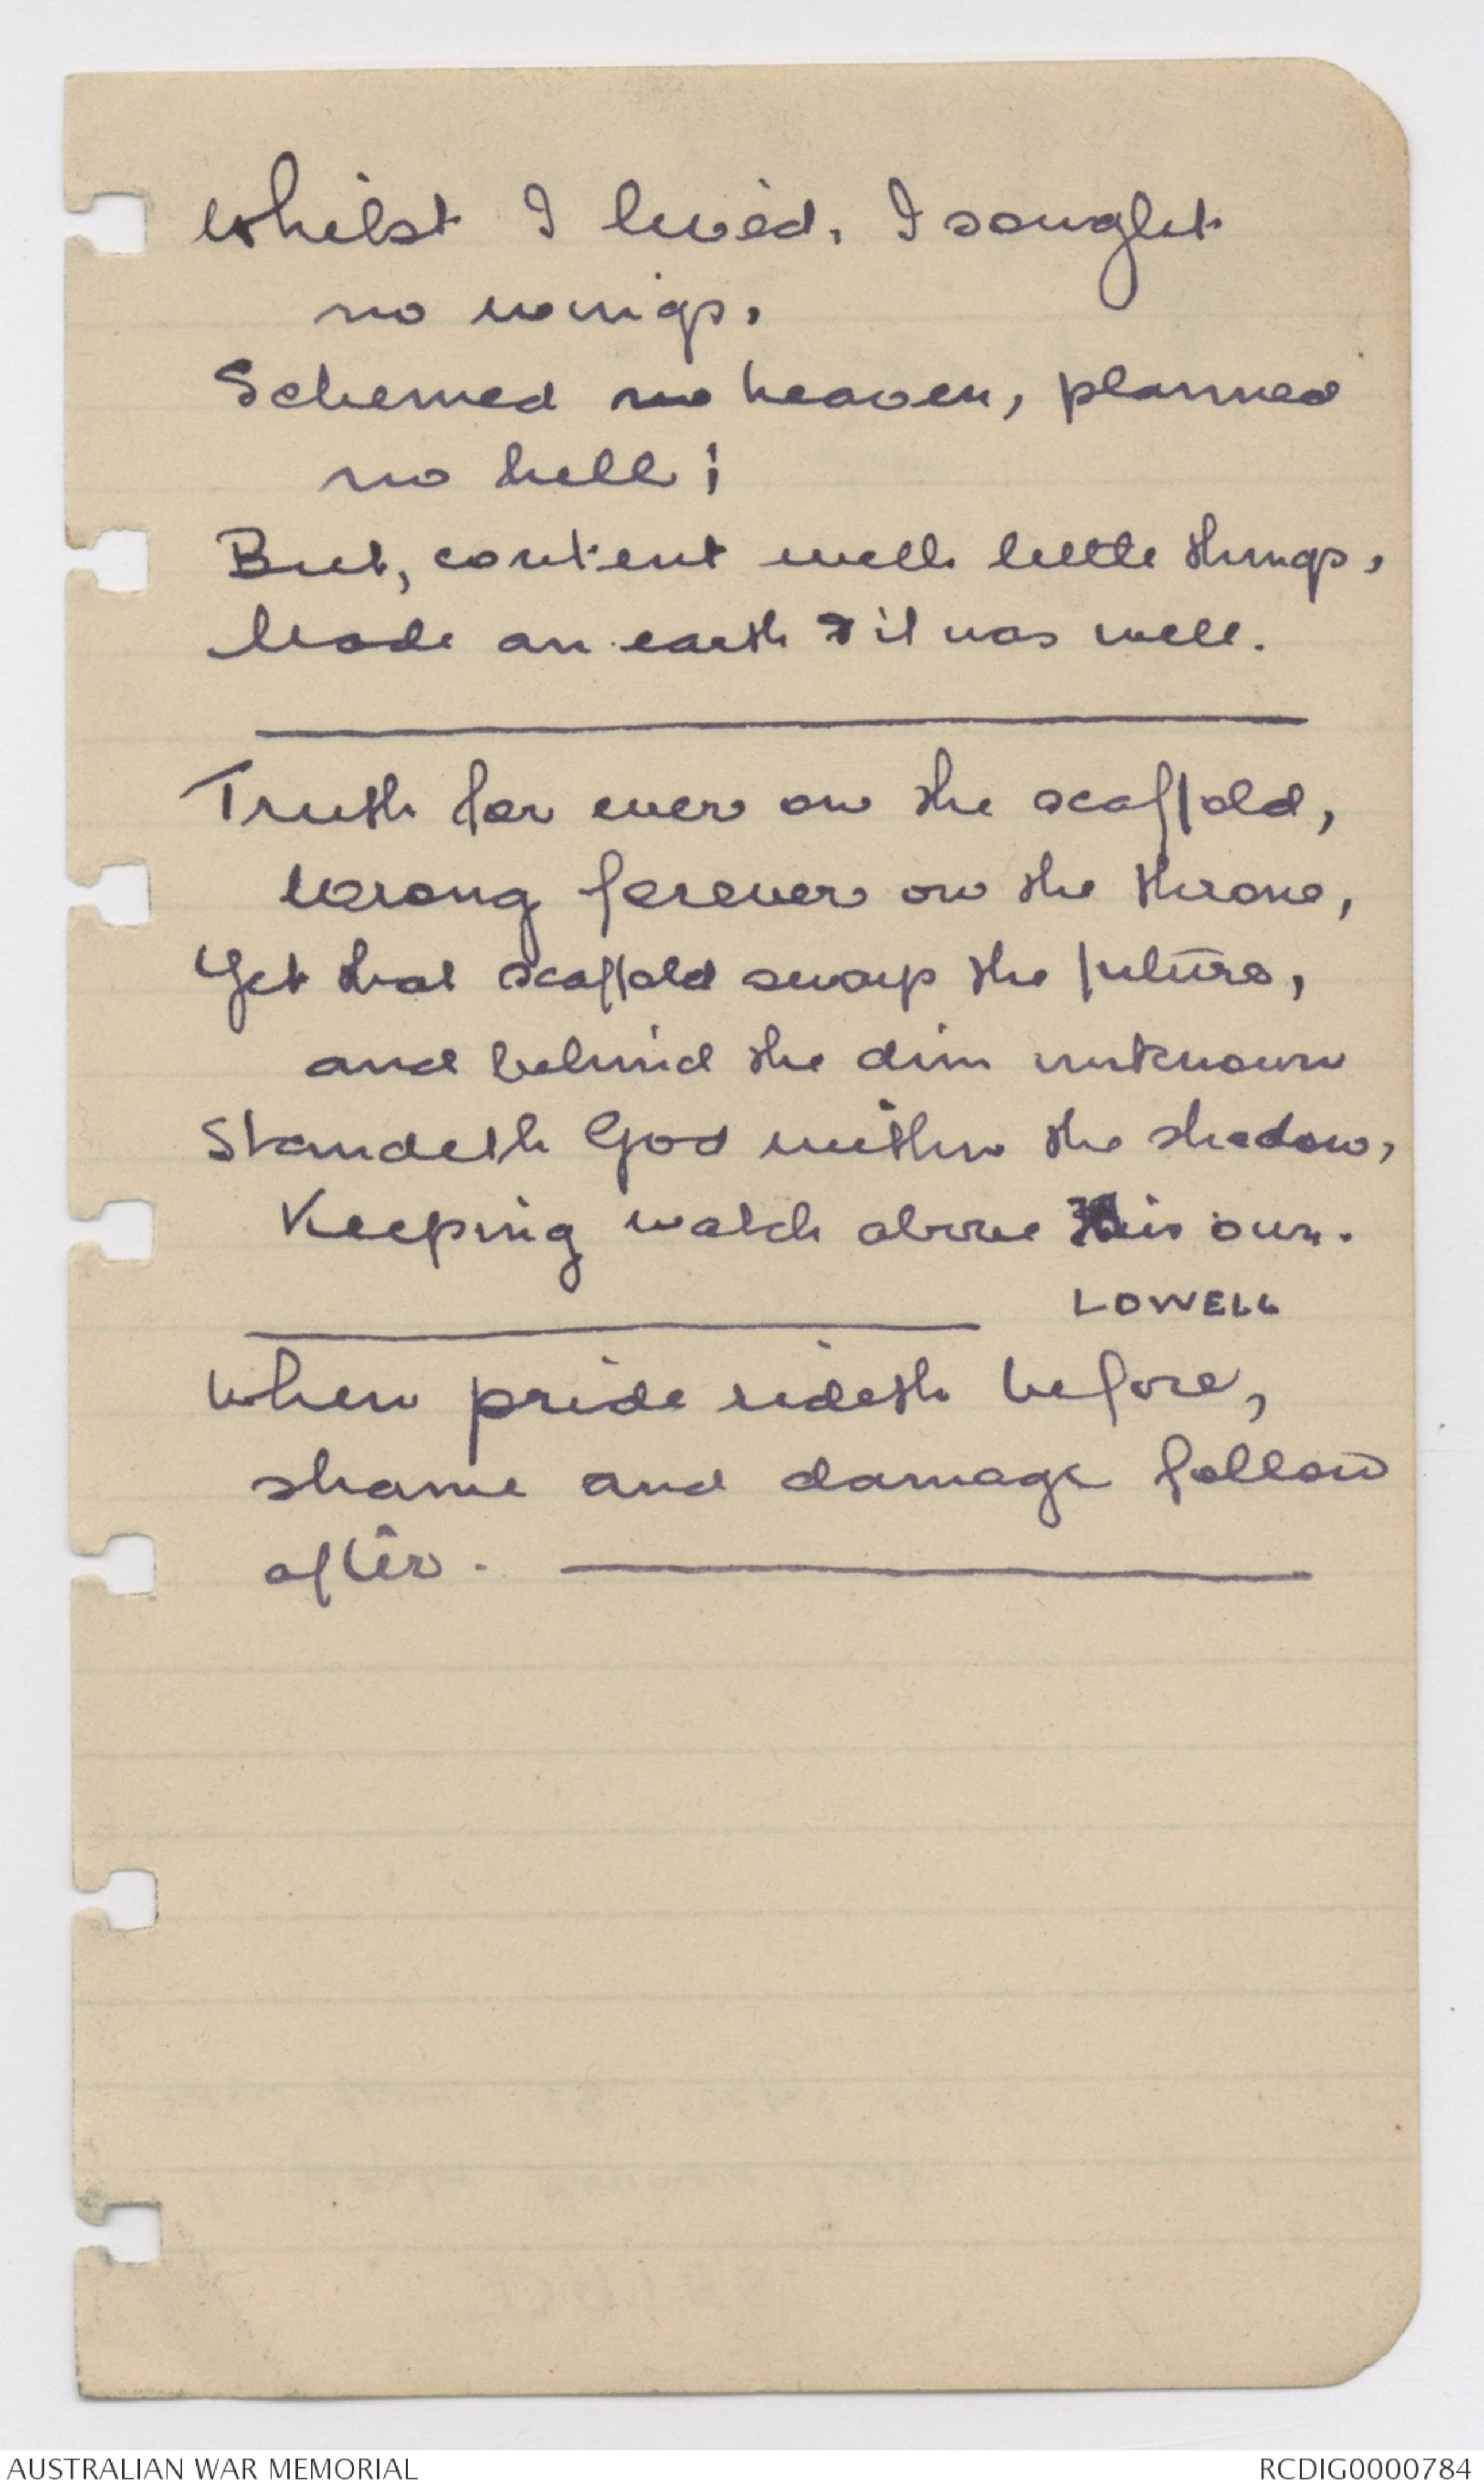 Whilst I lived, I sought
no wings,
Schemed no heaven, planned
no hell;
But, content with little things,
Made an earth & it was well.
Truth for ever on the scaffold,
Wrong forever on the throne,
Yet that scaffold sways the future,
and behind the dim unknown
Standeth God within the shadow,
Keeping watch above His own.
LOWELL
When pride rideth before,
shame and damage follow
after.
AUSTRALIAN WAR MEMORIAL
RCDIG0000784